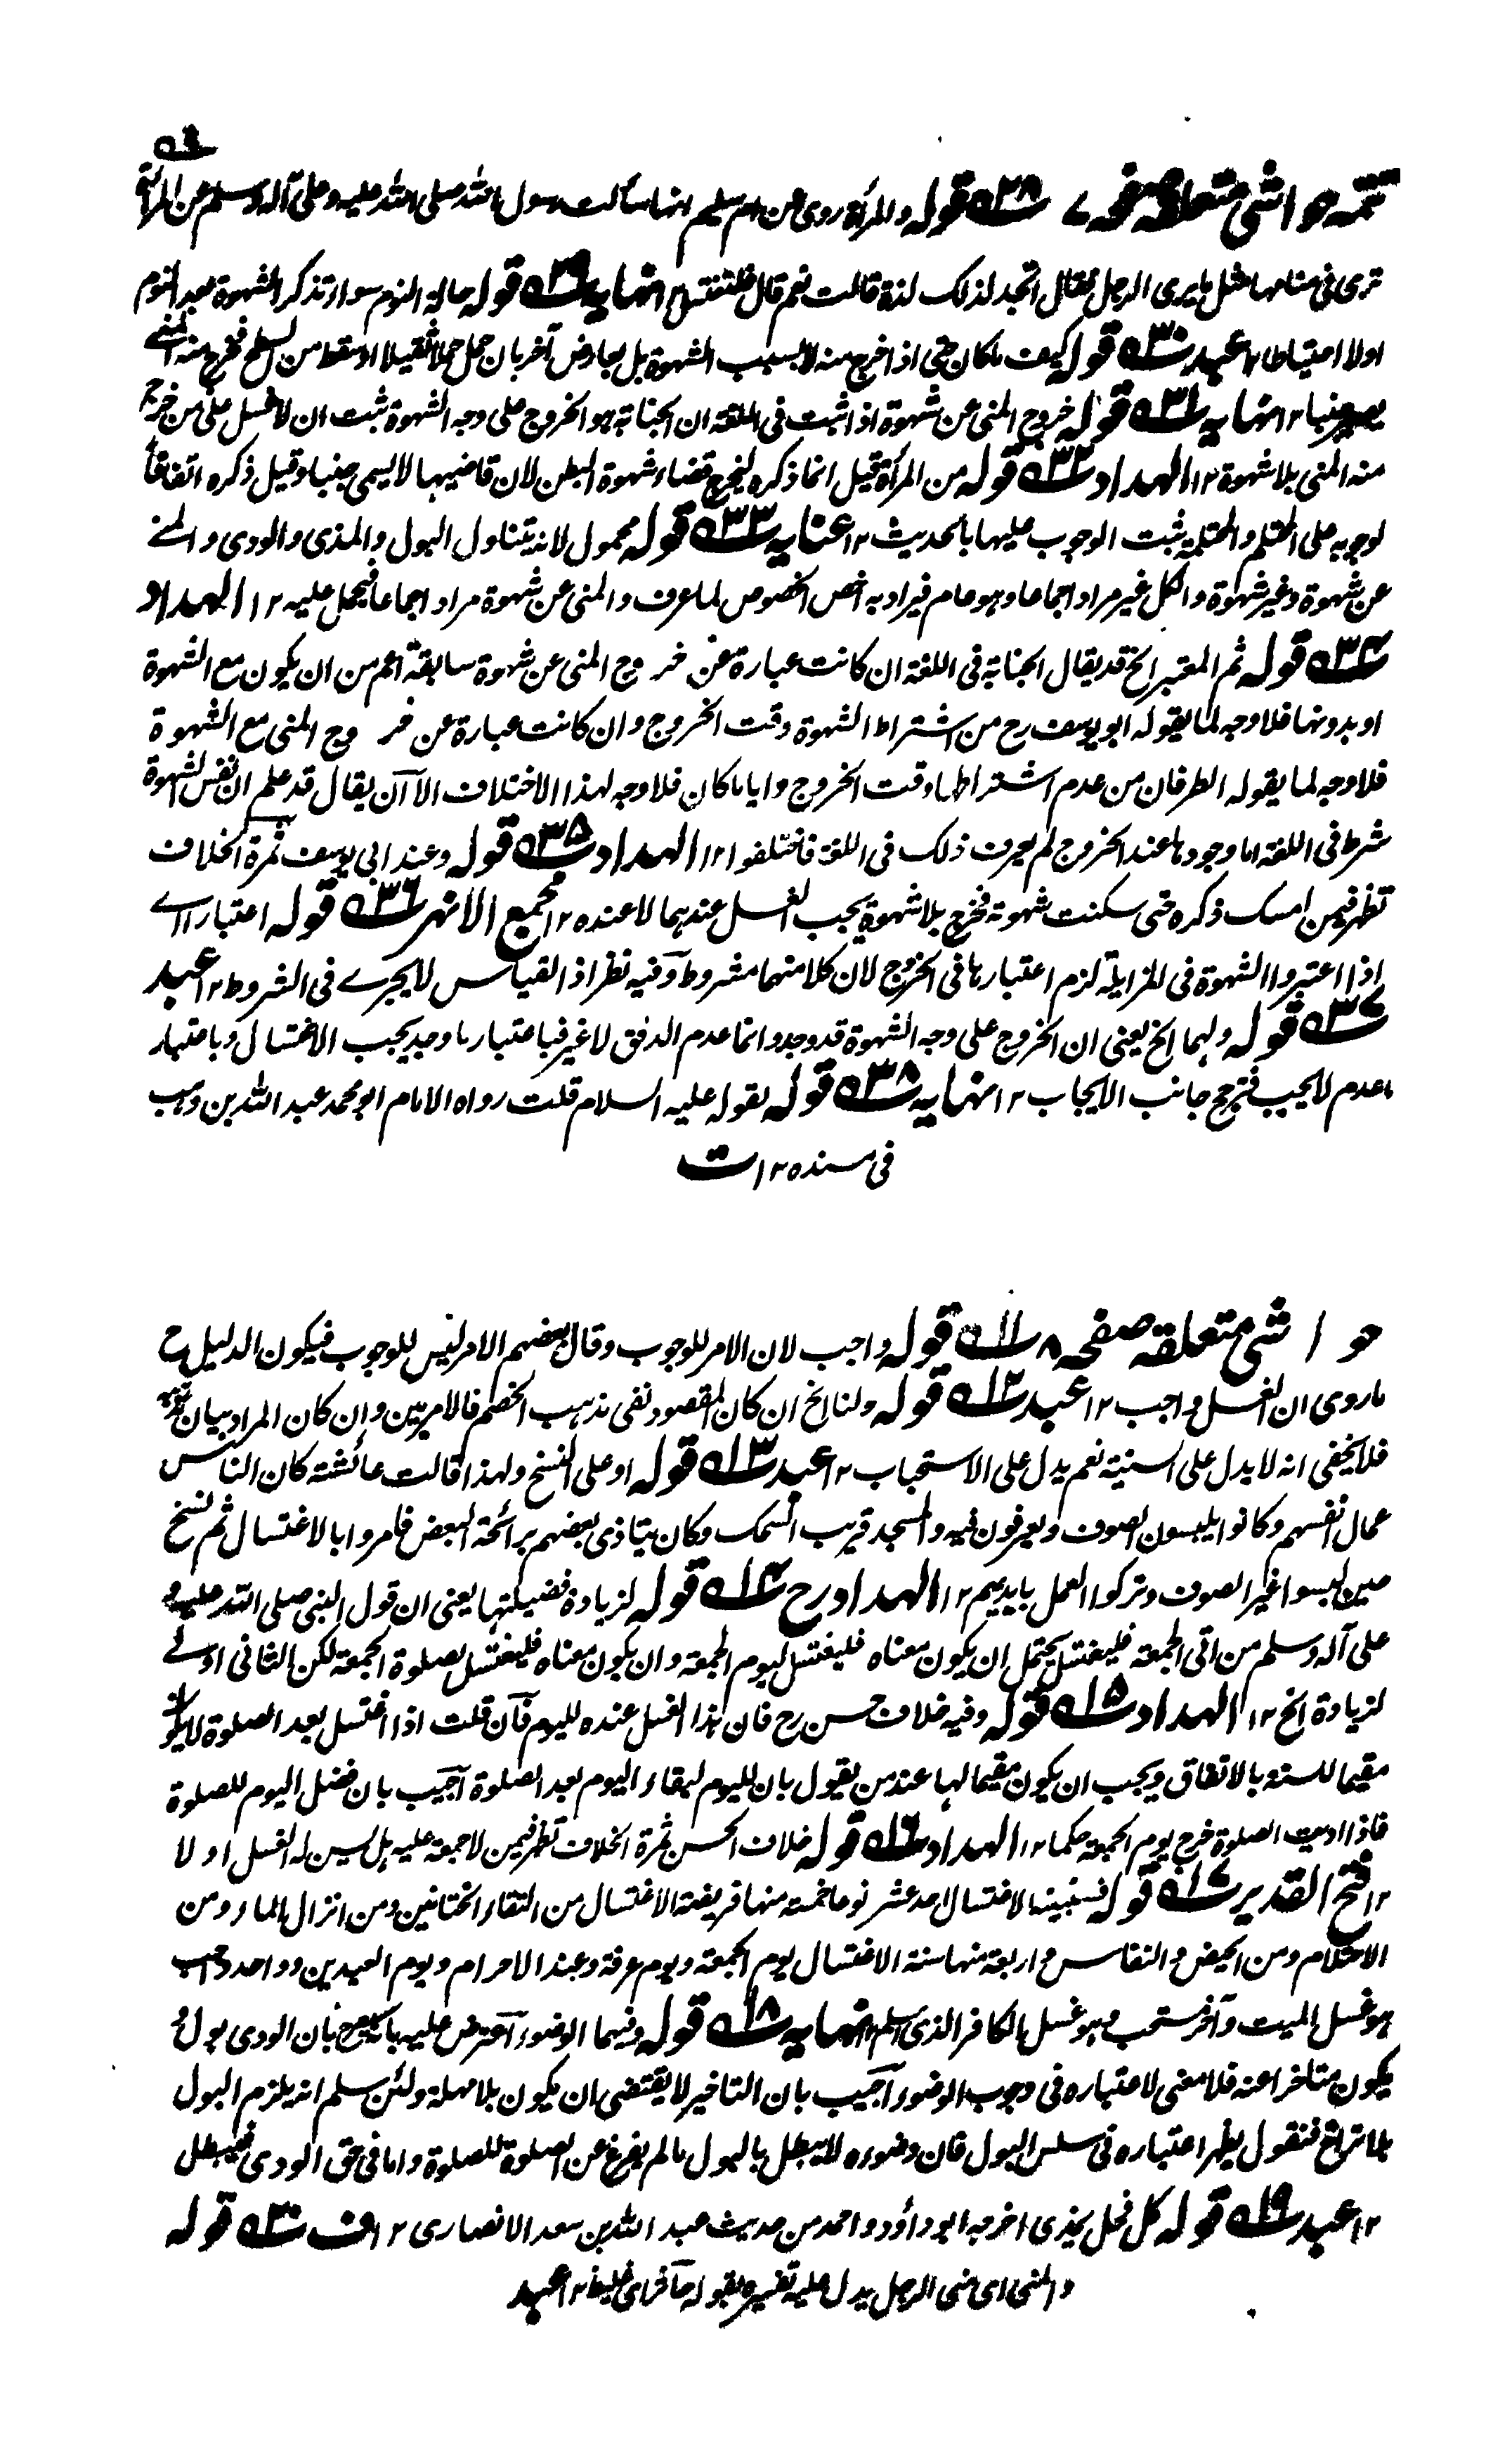 تتمه حواشی متعلقه صفحه ۷ ۲۸ قوله والمرأة روی عن ام سلیم انها سألت رسول الله صلی الله علیه وعلی آله وسلم عن المرأة
تری فی منامها مثل ما یری الرجل فقال اتجد لذلک لذة قالت نعم قال فلتغتسل ۱۲ نهایه ۲۹ قوله حالة النوم سواء تذکر الشهوة بعد النوم
اولا احتیاطا ۱۲ عبد ۳۰ قوله کیف ما کان حتی اذا خرج منه لا بسبب الشهوة بل بعارض آخر بان حمل حملا ثقیلا او سقط من السطح فخرج منه المنی
یصیر جنبا ۱۲ نهایه ۳۱ قوله خروج المنی عن شهوة اذا ثبت فی اللغة ان الجنابة هو الخروج علی وجه الشهوة ثبت ان لا غسل علی من خرج
منه المنی بلا شهوة ۱۲ الهداد ۳۲ قوله من المرأة قیل انما ذکره لیخرج قضاء شهوة البطن لان قاضیها لا یسمی جنبا وقیل ذکره اتفاقا
لوجوبه علی المحتلم والمحتلمة ثبت الوجوب علیها بالحدیث ۱۲ عنایه ۳۳ قوله محمول لانه یتناول البول والمذی والودی والمنی
عن شهوة وغیر شهوة والکل غیر مراد اجماعا وهو عام فیراد به اخص الخصوص لما عرف والمنی عن شهوة مراد اجماعا فیحمل علیه ۱۲ الهداد
۳۴ قوله ثم المعتبر الخ قد یقال الجنابة فی اللغة ان کانت عبارة عن خروج المنی عن شهوة سابقة اعم من ان یکون مع الشهوة
او بدونها فلا وجه لما یقوله ابو یوسف رح من اشتراط الشهوة وقت الخروج وان کانت عبارة عن خروج المنی مع الشهوة
فلا وجه لما یقوله الطرفان من عدم اشتراطها وقت الخروج وایا ما کان فلا وجه لهذا الاختلاف الا آن یقال قد علم ان نفس الشهوة
شرط فی اللغة اما وجودها عند الخروج لم یعرف ذلک فی اللغة فاختلفوا ۱۲ الهداد ۳۵ قوله وعند ابی یوسف ثمرة الخلاف
تظهر فیمن امسک ذکره حتی سکنت شهوته فخرج بلا شهوة یجب الغسل عندهما لا عنده ۱۲ مجمع الانهر ۳۶ قوله اعتبارا ای
اذا اعتبروا الشهوة فی المزایلة لزم اعتبارها فی الخروج لان کلا منهما مشروط وفیه نظر اذ القیاس لا یجری فی الشروط ۱۲ عبد
۳۷ قوله ولهما الخ یعنی ان الخروج علی وجه الشهوة قد وجد وانما عدم الدفق لا غیر فباعتبار ما وجد یجب الاغتسال وباعتبار
ما عدم لا یجب فترجح جانب الایجاب ۱۲ نهایه ۳۸ قوله لقوله علیه السلام قلت رواه الامام ابو محمد عبد الله بن وهب
فی مسنده ۱۲ ت
حواشی متعلقه صفحه ۸ ۱۱ قوله واجب لان الامر للوجوب وقال بعضهم الامر لیس للوجوب فیکون الدلیل ح
ما روی ان الغسل واجب ۱۲ عبد ۱۲ قوله ولنا الخ ان کان المقصود نفی مذهب الخصم فالامر بین وان کان المراد بیان
فلا یخفی انه لا یدل علی السنیة نعم یدل علی الاستحباب ۱۲ عبد ۱۳ قوله او علی النسخ ولهذا قالت عائشة کان الناس
عمال انفسهم وکانوا یلبسون الصوف ویعرقون فیه والمسجد قریب السمک وکان یتاذی بعضهم برائحة البعض فامروا بالاغتسال ثم نسخ
حین لبسوا غیر الصوف وترکوا العمل بایدیهم ۱۲ الهداد رح ۱۴ قوله لزیادة فضیلتها یعنی ان قول النبی صلی الله علیه و
علی آله وسلم من اتی الجمعة فلیغتسل یحتمل ان یکون معناه فلیغتسل لیوم الجمعة وان یکون معناه فلیغتسل لصلوة الجمعة لکن الثانی اولی
لزیادة الخ ۱۲ الهداد ۱۵ قوله وفیه خلاف حسن رح فان هذا الغسل عنده للیوم فآن قلت اذا اغتسل بعد الصلوة لا یکون
مقیما للسنة بالاتفاق ویجب ان یکون مقیما لها عند من یقول بان للیوم لبقاء الیوم بعد الصلوة آجیب بان فضل الیوم للصلوة
فاذا ادیت الصلوة خرج یوم الجمعة حکما ۱۲ الهداد ۱۶ قوله خلاف الحسن ثمرة الخلاف تظهر فیمن لا جمعة علیه هل یسن له الغسل او لا
۱۲ فتح القدیر ۱۷ قوله الاغتسال احد عشر نوعا خمسة منها فریضة الاغتسال من التقاء الختانین ومن انزال الماء ومن
الاحتلام ومن الحیض والنفاس واربعة منها سنة الاغتسال یوم الجمعة ویوم عرفة وعند الاحرام ویوم العیدین وواحد واجب
هو غسل المیت وآخر مستحب وهو غسل الکافر الذی اسلم ۱۲ نهایه ۱۸ قوله وفیهما الوضوء آعترض علیه بان الودی بول
یکون متاخرا عنه فلا معنی لاعتباره فی وجوب الوضوء آجیب بان التاخیر لا یقتضی ان یکون بلا مهلة ولئن سلم انه یلزم البول
بلا تراخ فنقول یظهر اعتباره فی سلس البول فان وضوءه لا یبطل بالبول مالم یفرغ عن الصلوة للصلوة واما فی حق الودی فیبطل
۱۲ عبد ۱۹ قوله کل فحل یمذی اخرجه ابو داؤد واحمد من حدیث عبد الله بن سعد الانصاری ۱۲ ف ۲۰ قوله
والمنی ای منی الرجل یدل علیه تفسیره بقوله خاثر ای غلیظ ۱۲ عبد